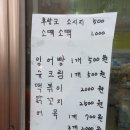 후랑크 소시지 500
소떡소떡 1,000
잉어빵 1개 500원
슈크림 1개 500원
떡볶이 2000원
닭꼬치 2500원
어묵 1개 700원